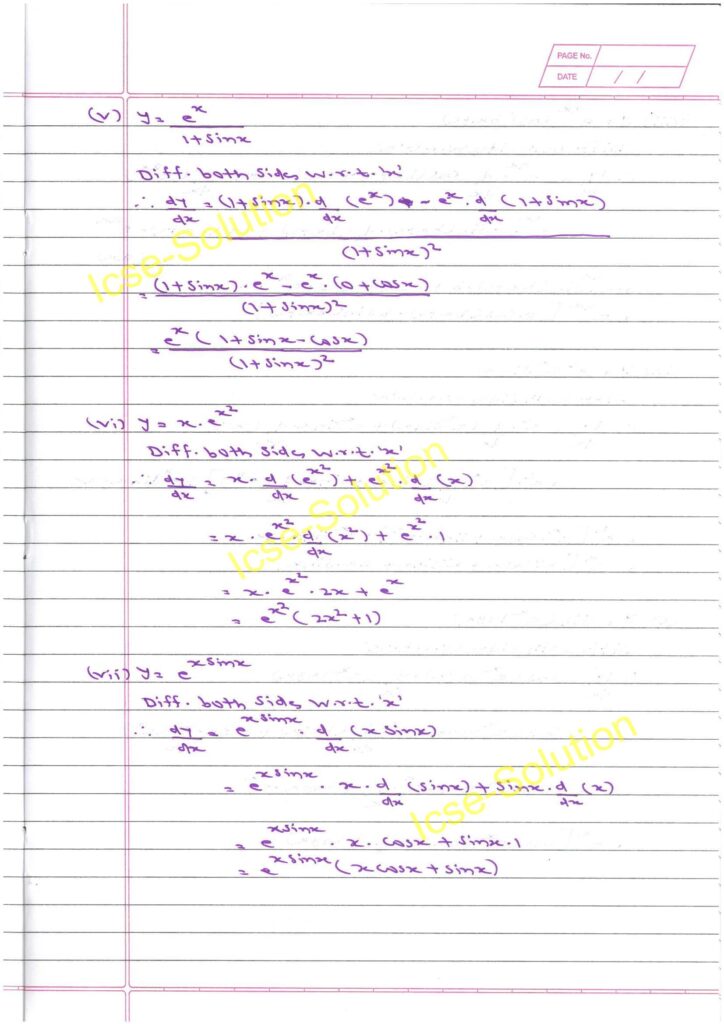 PAGE No.
DATE / /
(v) y = e^x / (1+sinx)
Diff. both sides w.r.t. 'x'
∴ dy/dx = ((1+sinx) · d/dx (e^x) - e^x · d/dx (1+sinx)) / (1+sinx)^2
= ((1+sinx) · e^x - e^x · (0+cosx)) / (1+sinx)^2
= e^x (1+sinx-cosx) / (1+sinx)^2
(vi) y = x · e^x^2
Diff. both sides w.r.t. 'x'
∴ dy/dx = x · d/dx (e^x^2) + e^x^2 · d/dx (x)
= x · e^x^2 · d/dx (x^2) + e^x^2 · 1
= x · e^x^2 · 2x + e^x
= e^x^2 (2x^2+1)
(vii) y = e^xsinx
Diff. both sides w.r.t. 'x'
∴ dy/dx = e^xsinx · d/dx (xsinx)
= e^xsinx · x · d/dx (sinx) + sinx · d/dx (x)
= e^xsinx · x · cosx + sinx · 1
= e^xsinx (xcosx + sinx)
Icse-Solution
Icse-Solution
Icse-Solution